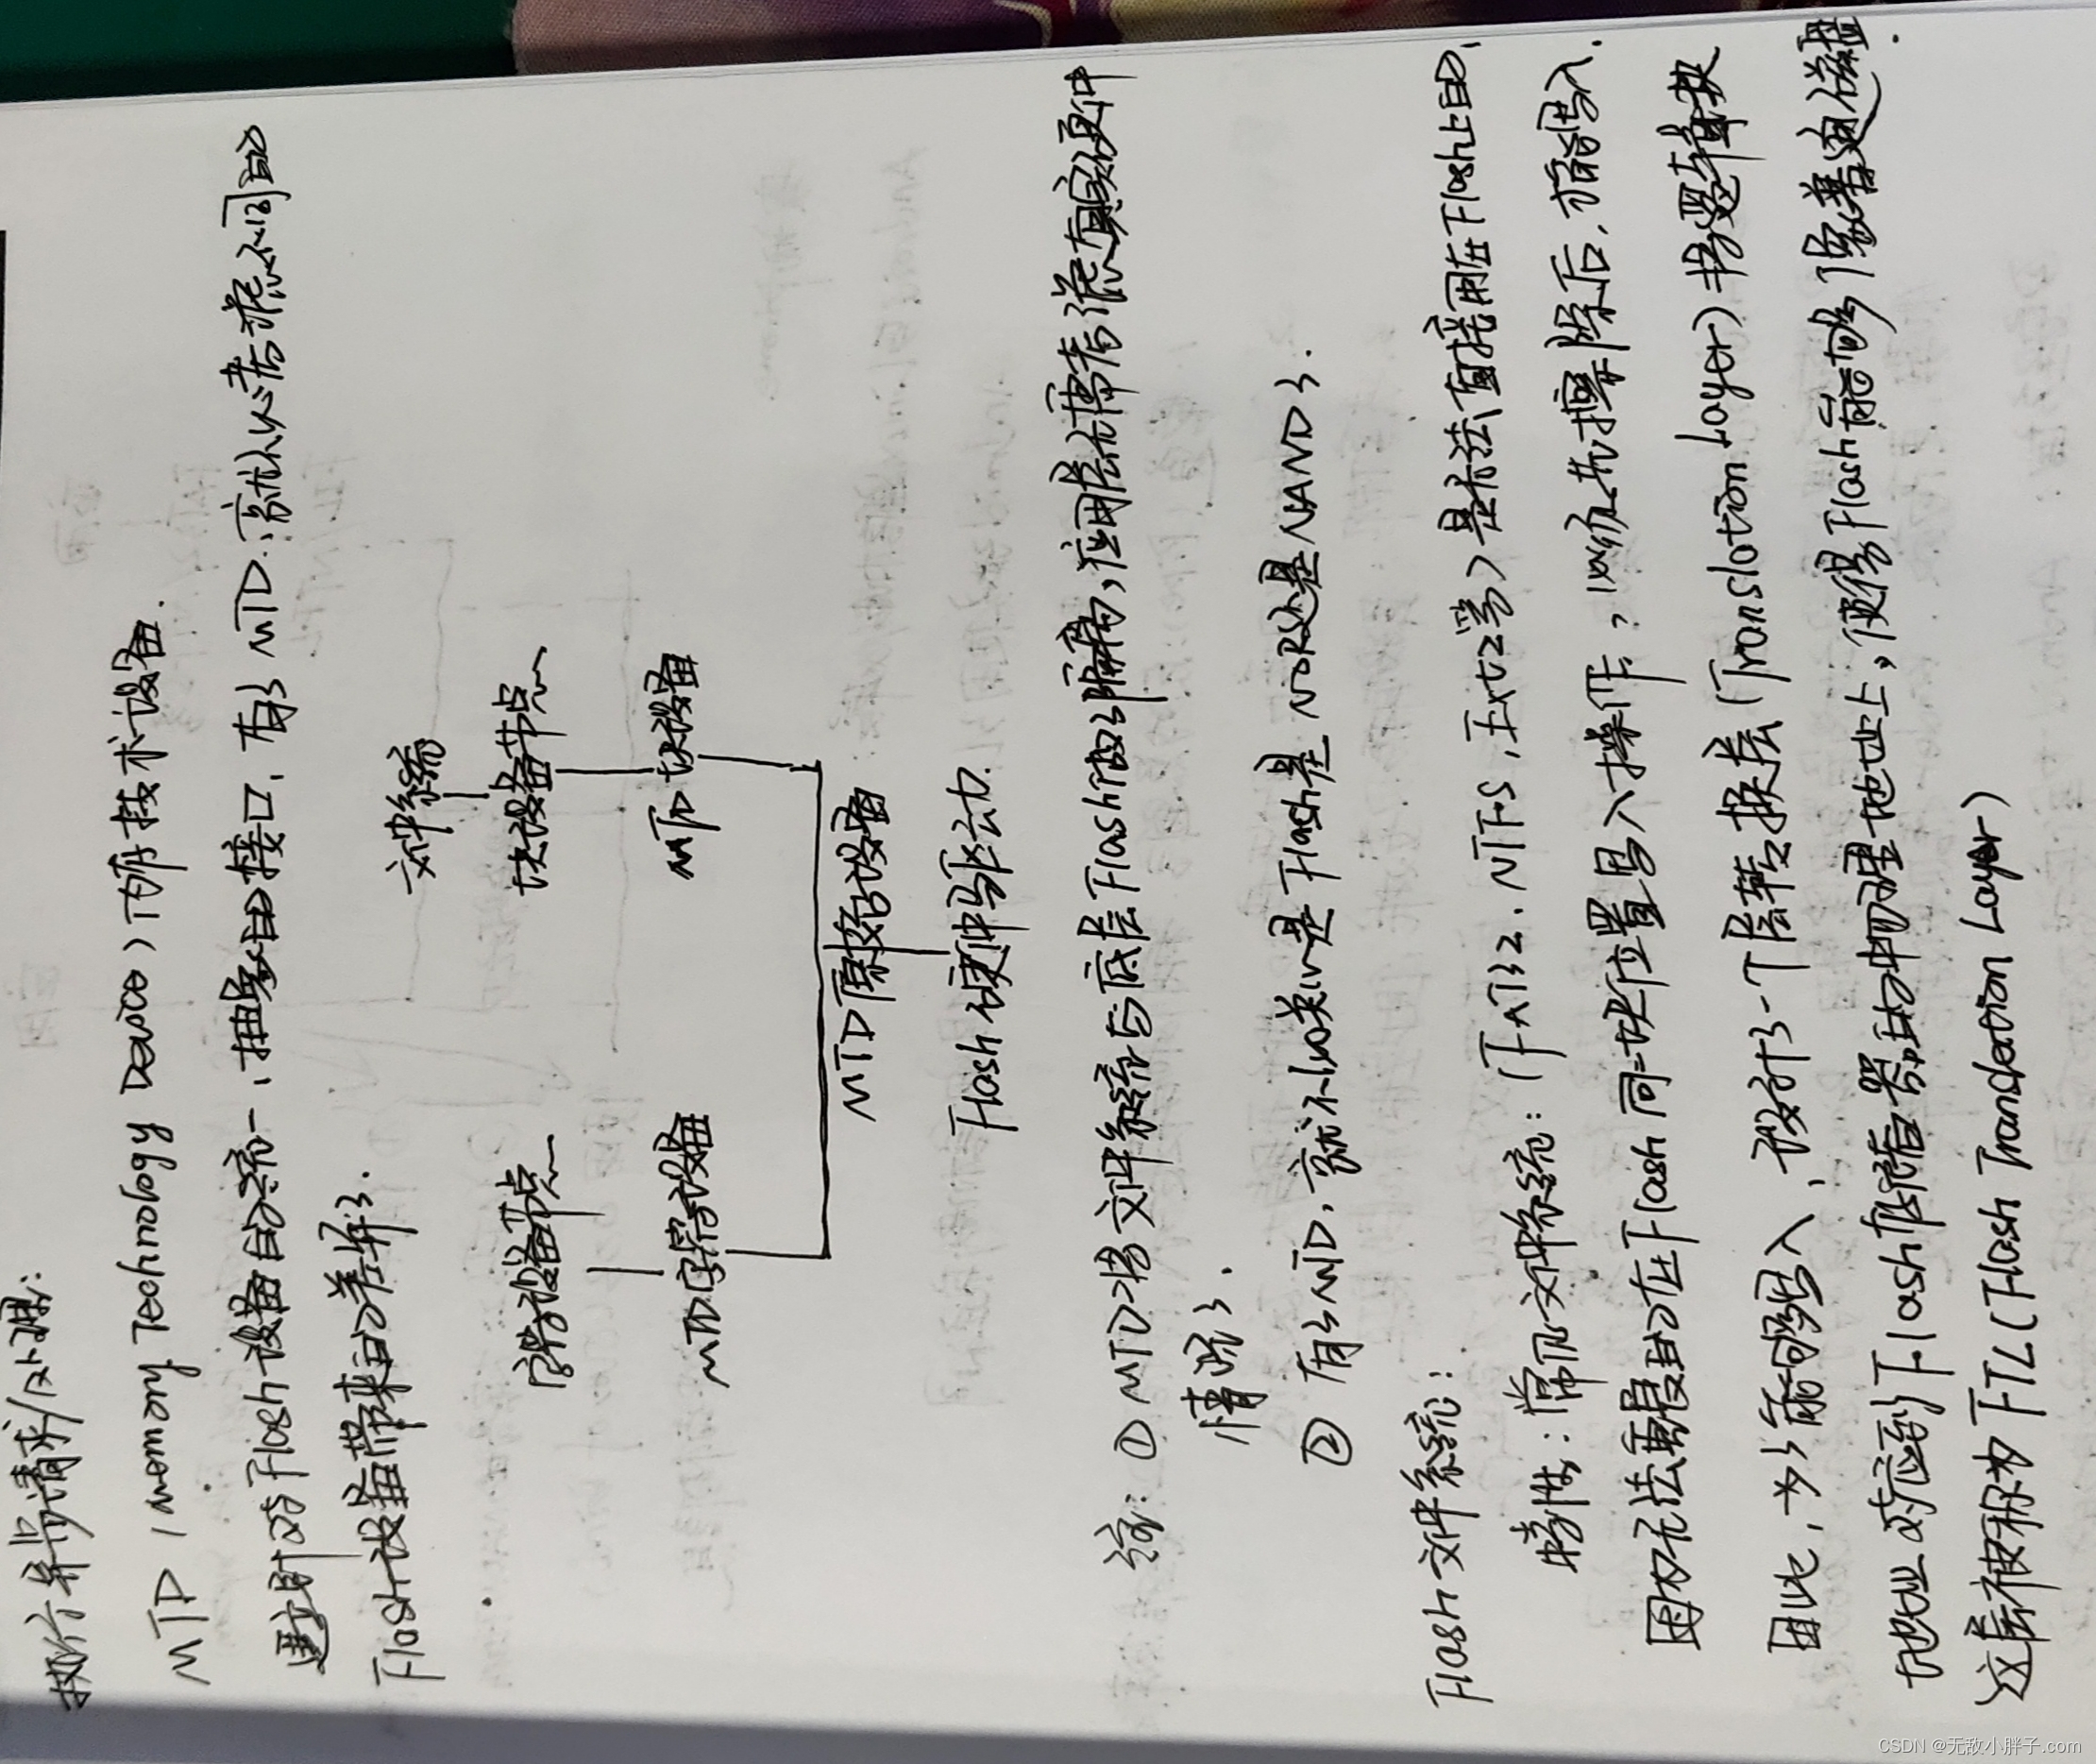 执行异步请求/处理:
MTD (memory Technology Device) 内存技术设备.
建立时对Flash设备自义统一、抽象的接口, 有了MTD.就不必考虑不同的
Flash设备带来的差异了.
文件系统
字符设备节点 块设备节点
MTD字符设备 MTD块设备
MTD原始设备
Flash硬件驱动.
注: ① MTD将文件系统与底层Flash存储器隔离,应用层无需考虑真实硬件
情况了.
② 有了MTD, 就不关心是Flash是NOR还是NAND了.
Flash文件系统:
特性: 常见文件系统: (FAT32、NTFS、Ext2等) 是无法直接用在Flash上的,
因为无法重复的在Flash同一块位置写入操作, 必须先擦除后, 才能写入.
因此, 为了能够写入, 设计了一个层转换层(Translation Layer) 将逻辑块
地址对应到Flash存储器的中物理地址上, 使得Flash能够像普通磁盘.
这层被称为FTL(Flash Translation Layer)
CSDN @无敌小胖子.com